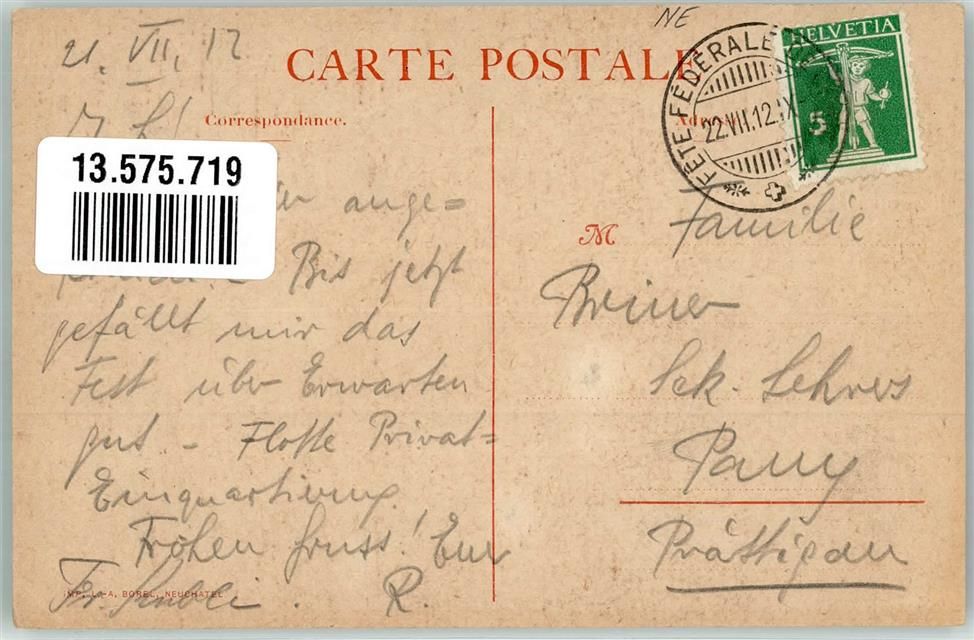 NE
21. VII. 12
CARTE POSTALE
HELVETIA
5
FÊTE FÉDÉRALE
22.VII.12.IX
Correspondance.
13.575.719
ange=
Bis jetzt
gefällt mir das
Fest über Erwarten
gut - Flotte Privat=
Einquartierung
Frohen Gruss! Euer
R.
IMP. L.-A. BOREL, NEUCHATEL
M
Familie
Briner
Sek. Lehrers
Pany
Prättigau